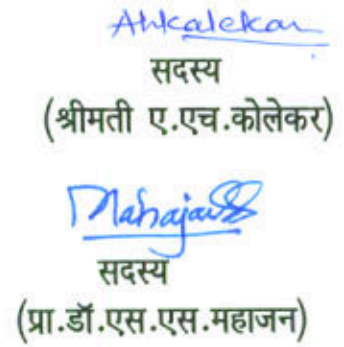 Ahkalekar
सदस्य
(श्रीमती ए.एच.कोलेकर)
Mahajan
सदस्य
(प्रा.डॉ.एस.एस.महाजन)